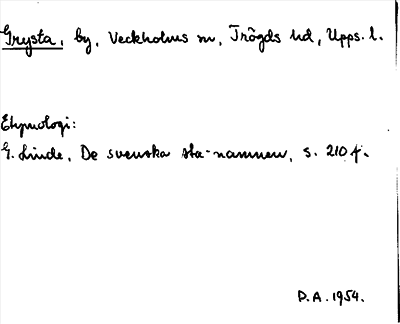 Grysta, by, Veckholms sn, Trögds hd, Upps. l.
Etymologi:
G. Linde, De svenska sta-namnen, s. 210 f.
D.A. 1954.